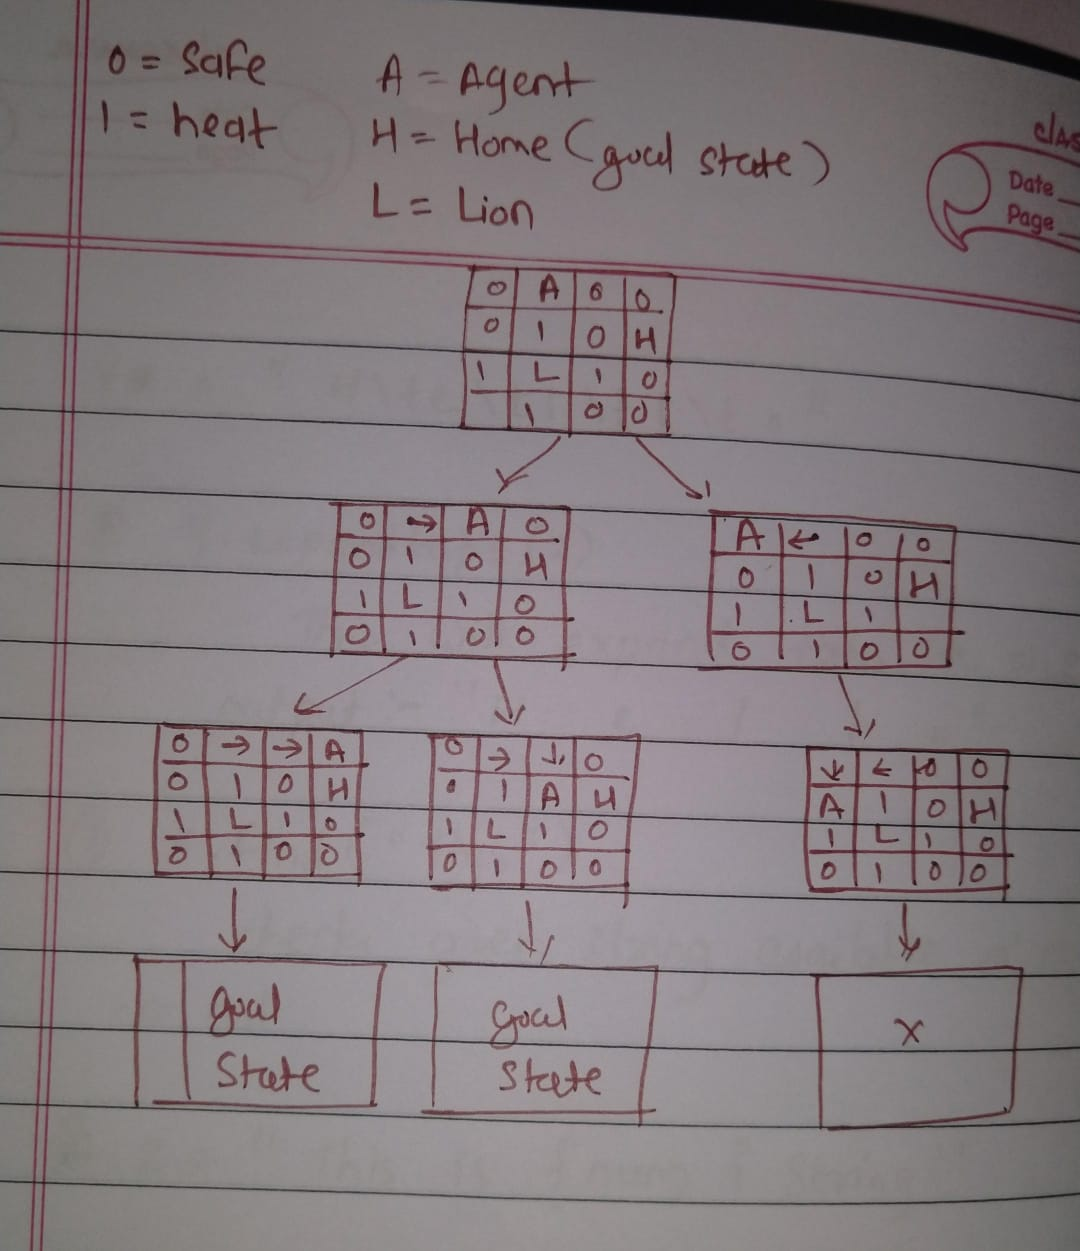 0 = Safe A = Agent
1 = heat H = Home (goal state)
L = Lion
Date
Page
0 A 0 0
0 1 0 H
1 L 1 0
1 0 0
0 → A 0
0 1 0 H
1 L 1 0
0 1 0 0
A ← 0 0
0 1 0 H
1 L 1
0 1 0 0
0 → → A
0 1 0 H
1 L 1 0
0 1 0 0
0 → ↓ 0
0 1 A H
1 L 1 0
0 1 0 0
↓ ← 0 0
A 1 0 H
1 L 1 0
0 1 0 0
goal
State
Goal
State
X